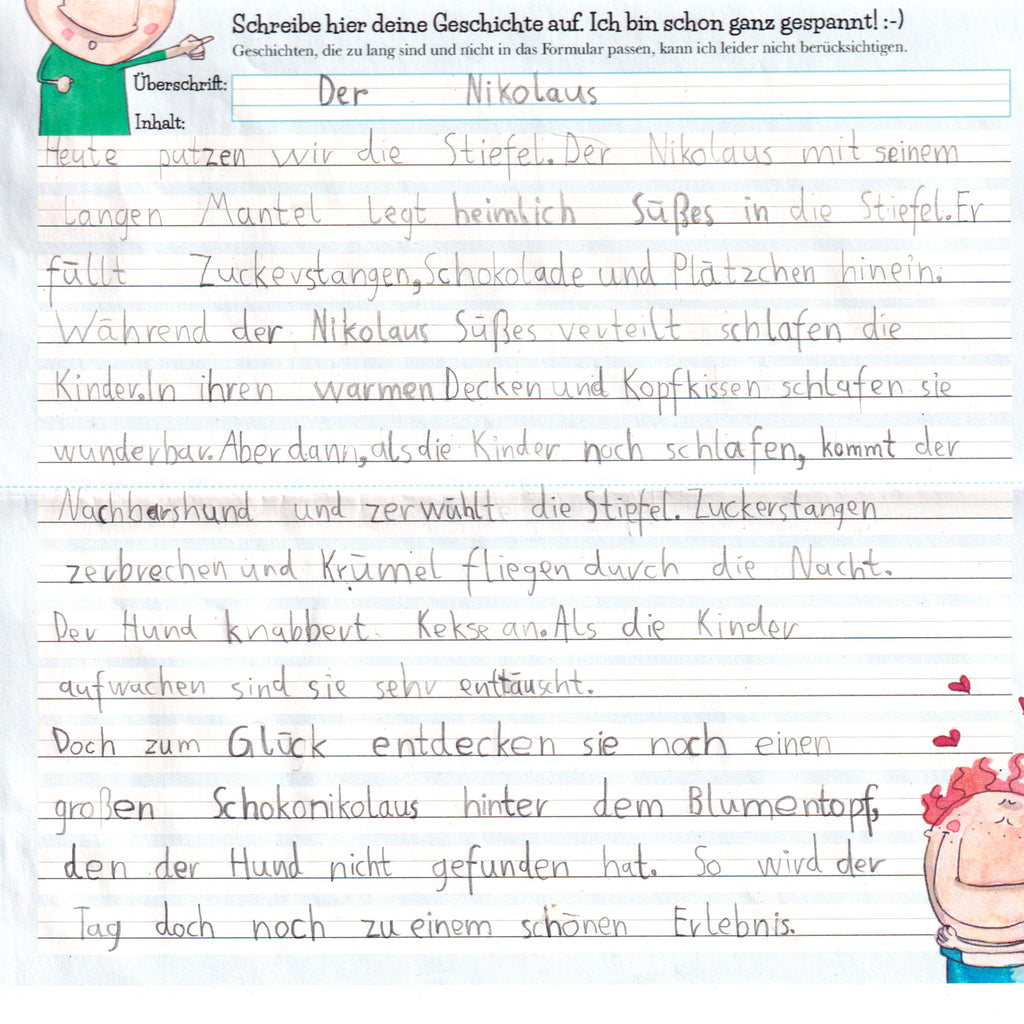 Schreibe hier deine Geschichte auf. Ich bin schon ganz gespannt! :-)
Geschichten, die zu lang sind und nicht in das Formular passen, kann ich leider nicht berücksichtigen.
Überschrift: Der Nikolaus
Inhalt:
Heute putzen wir die Stiefel. Der Nikolaus mit seinem
langen Mantel legt heimlich Süßes in die Stiefel. Er
füllt Zuckerstangen, Schokolade und Plätzchen hinein.
Während der Nikolaus Süßes verteilt schlafen die
Kinder. In ihren warmen Decken und Kopfkissen schlafen sie
wunderbar. Aber dann, als die Kinder noch schlafen, kommt der
Nachbarshund und zerwühlt die Stiefel. Zuckerstangen
zerbrechen und Krümel fliegen durch die Nacht.
Der Hund knabbert Kekse an. Als die Kinder
aufwachen sind sie sehr enttäuscht.
Doch zum Glück entdecken sie noch einen
großen Schokonikolaus hinter dem Blumentopf,
den der Hund nicht gefunden hat. So wird der
Tag doch noch zu einem schönen Erlebnis.